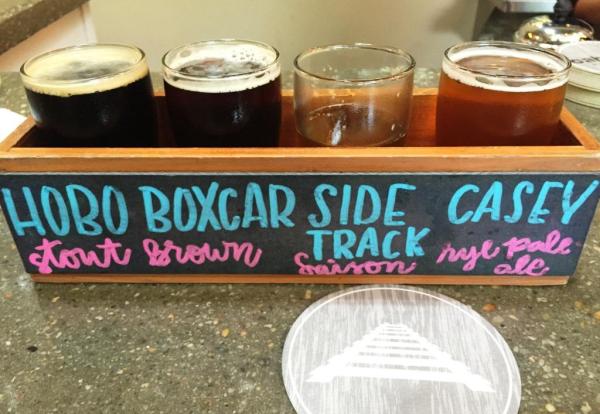 HOBO BOXCAR SIDE TRACK CASEY
stout brown Saison rye pale ale